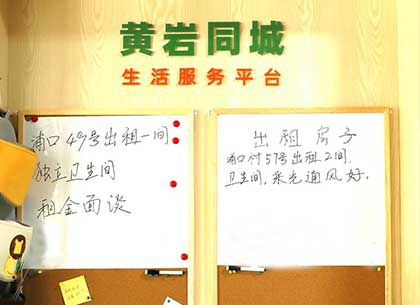 黄岩同城
生活服务平台
浦口49号出租一间
独立卫生间
租金面谈
出租房子
浦口村57号出租2间,
卫生间,采光通风好.